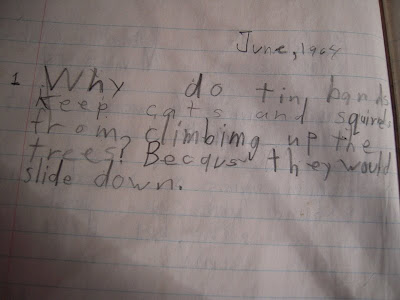 June, 1964
1 Why do tin bands
keep cats and squirels
from climbimg up the
trees? Becaus they would
slide down.